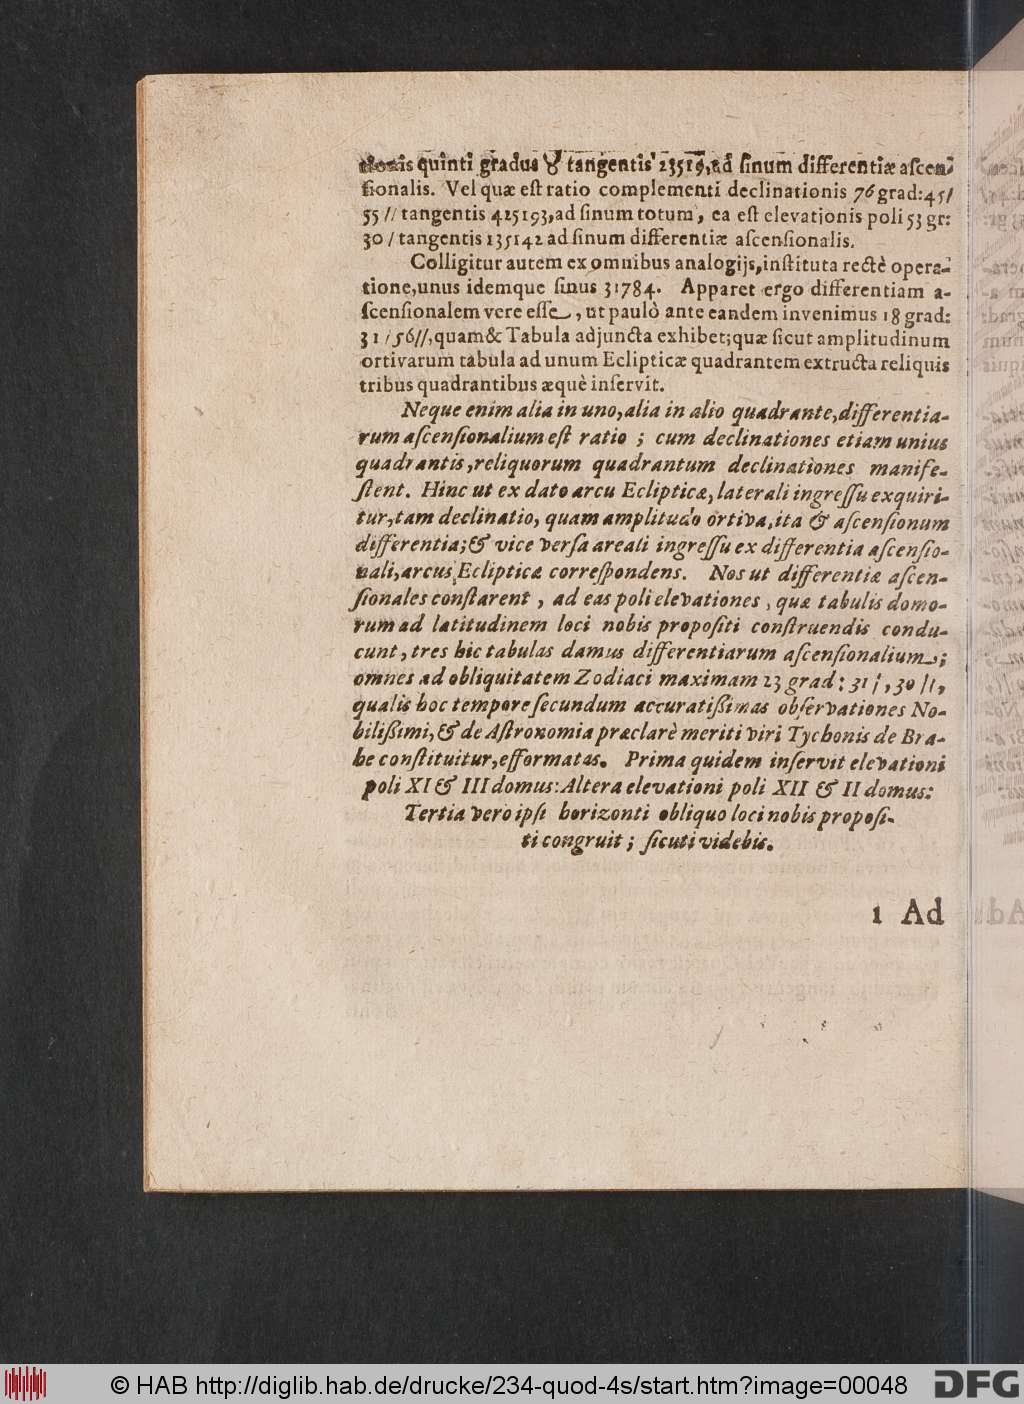 tionis quinti gradus ♉ tangentis 23519, ad ſinum differentiæ aſcen-
ſionalis. Vel quæ eſt ratio complementi declinationis 76 grad: 45/
55// tangentis 425193, ad ſinum totum, ea eſt elevationis poli 53 gr:
30 / tangentis 135142 ad ſinum differentiæ aſcenſionalis.
Colligitur autem ex omnibus analogijs, inſtituta rectè opera-
tione, unus idemque ſinus 31784. Apparet ergo differentiam a-
ſcenſionalem vere eſſe, ut paulò ante eandem invenimus 18 grad:
31 / 56//, quam & Tabula adjuncta exhibet; quæ ſicut amplitudinum
ortivarum tabula ad unum Eclipticæ quadrantem extructa reliquis
tribus quadrantibus æquè inſervit.
Neque enim alia in uno, alia in alio quadrante, differentia-
rum aſcenſionalium eſt ratio ; cum declinationes etiam unius
quadrantis, reliquorum quadrantum declinationes manife-
ſtent. Hinc ut ex dato arcu Eclipticæ, laterali ingreſſu exquiri-
tur, tam declinatio, quam amplitudo ortiva, ita & aſcenſionum
differentia; & vice verſa areali ingreſſu ex differentia aſcenſio-
nali, arcus Eclipticæ correſpondens. Nos ut differentiæ aſcen-
ſionales conſtarent, ad eas poli elevationes, quæ tabulis domo-
rum ad latitudinem loci nobis propoſiti conſtruendis condu-
cunt, tres hic tabulas damus differentiarum aſcenſionalium;
omnes ad obliquitatem Zodiaci maximam 23 grad: 31 /, 30 //,
qualis hoc tempore ſecundum accuratißimas obſervationes No-
bilißimi, & de Aſtronomia præclarè meriti viri Tychonis de Bra-
he conſtituitur, efformatas. Prima quidem inſervit elevationi
poli XI & III domus: Altera elevationi poli XII & II domus:
Tertia vero ipſi horizonti obliquo loci nobis propoſi-
ti congruit ; ſicuti videbis.
1 Ad
© HAB http://diglib.hab.de/drucke/234-quod-4s/start.htm?image=00048
DFG